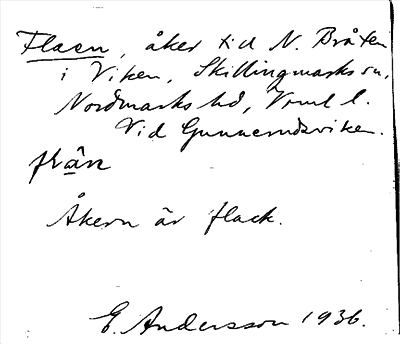 Flaen, åker till N. Bråten
i Viken, Skillingmarks sn,
Nordmarks hd, Vrml l.
Vid Gunnerudsviken.
flân
Åkern är flack.
E. Andersson 1936.